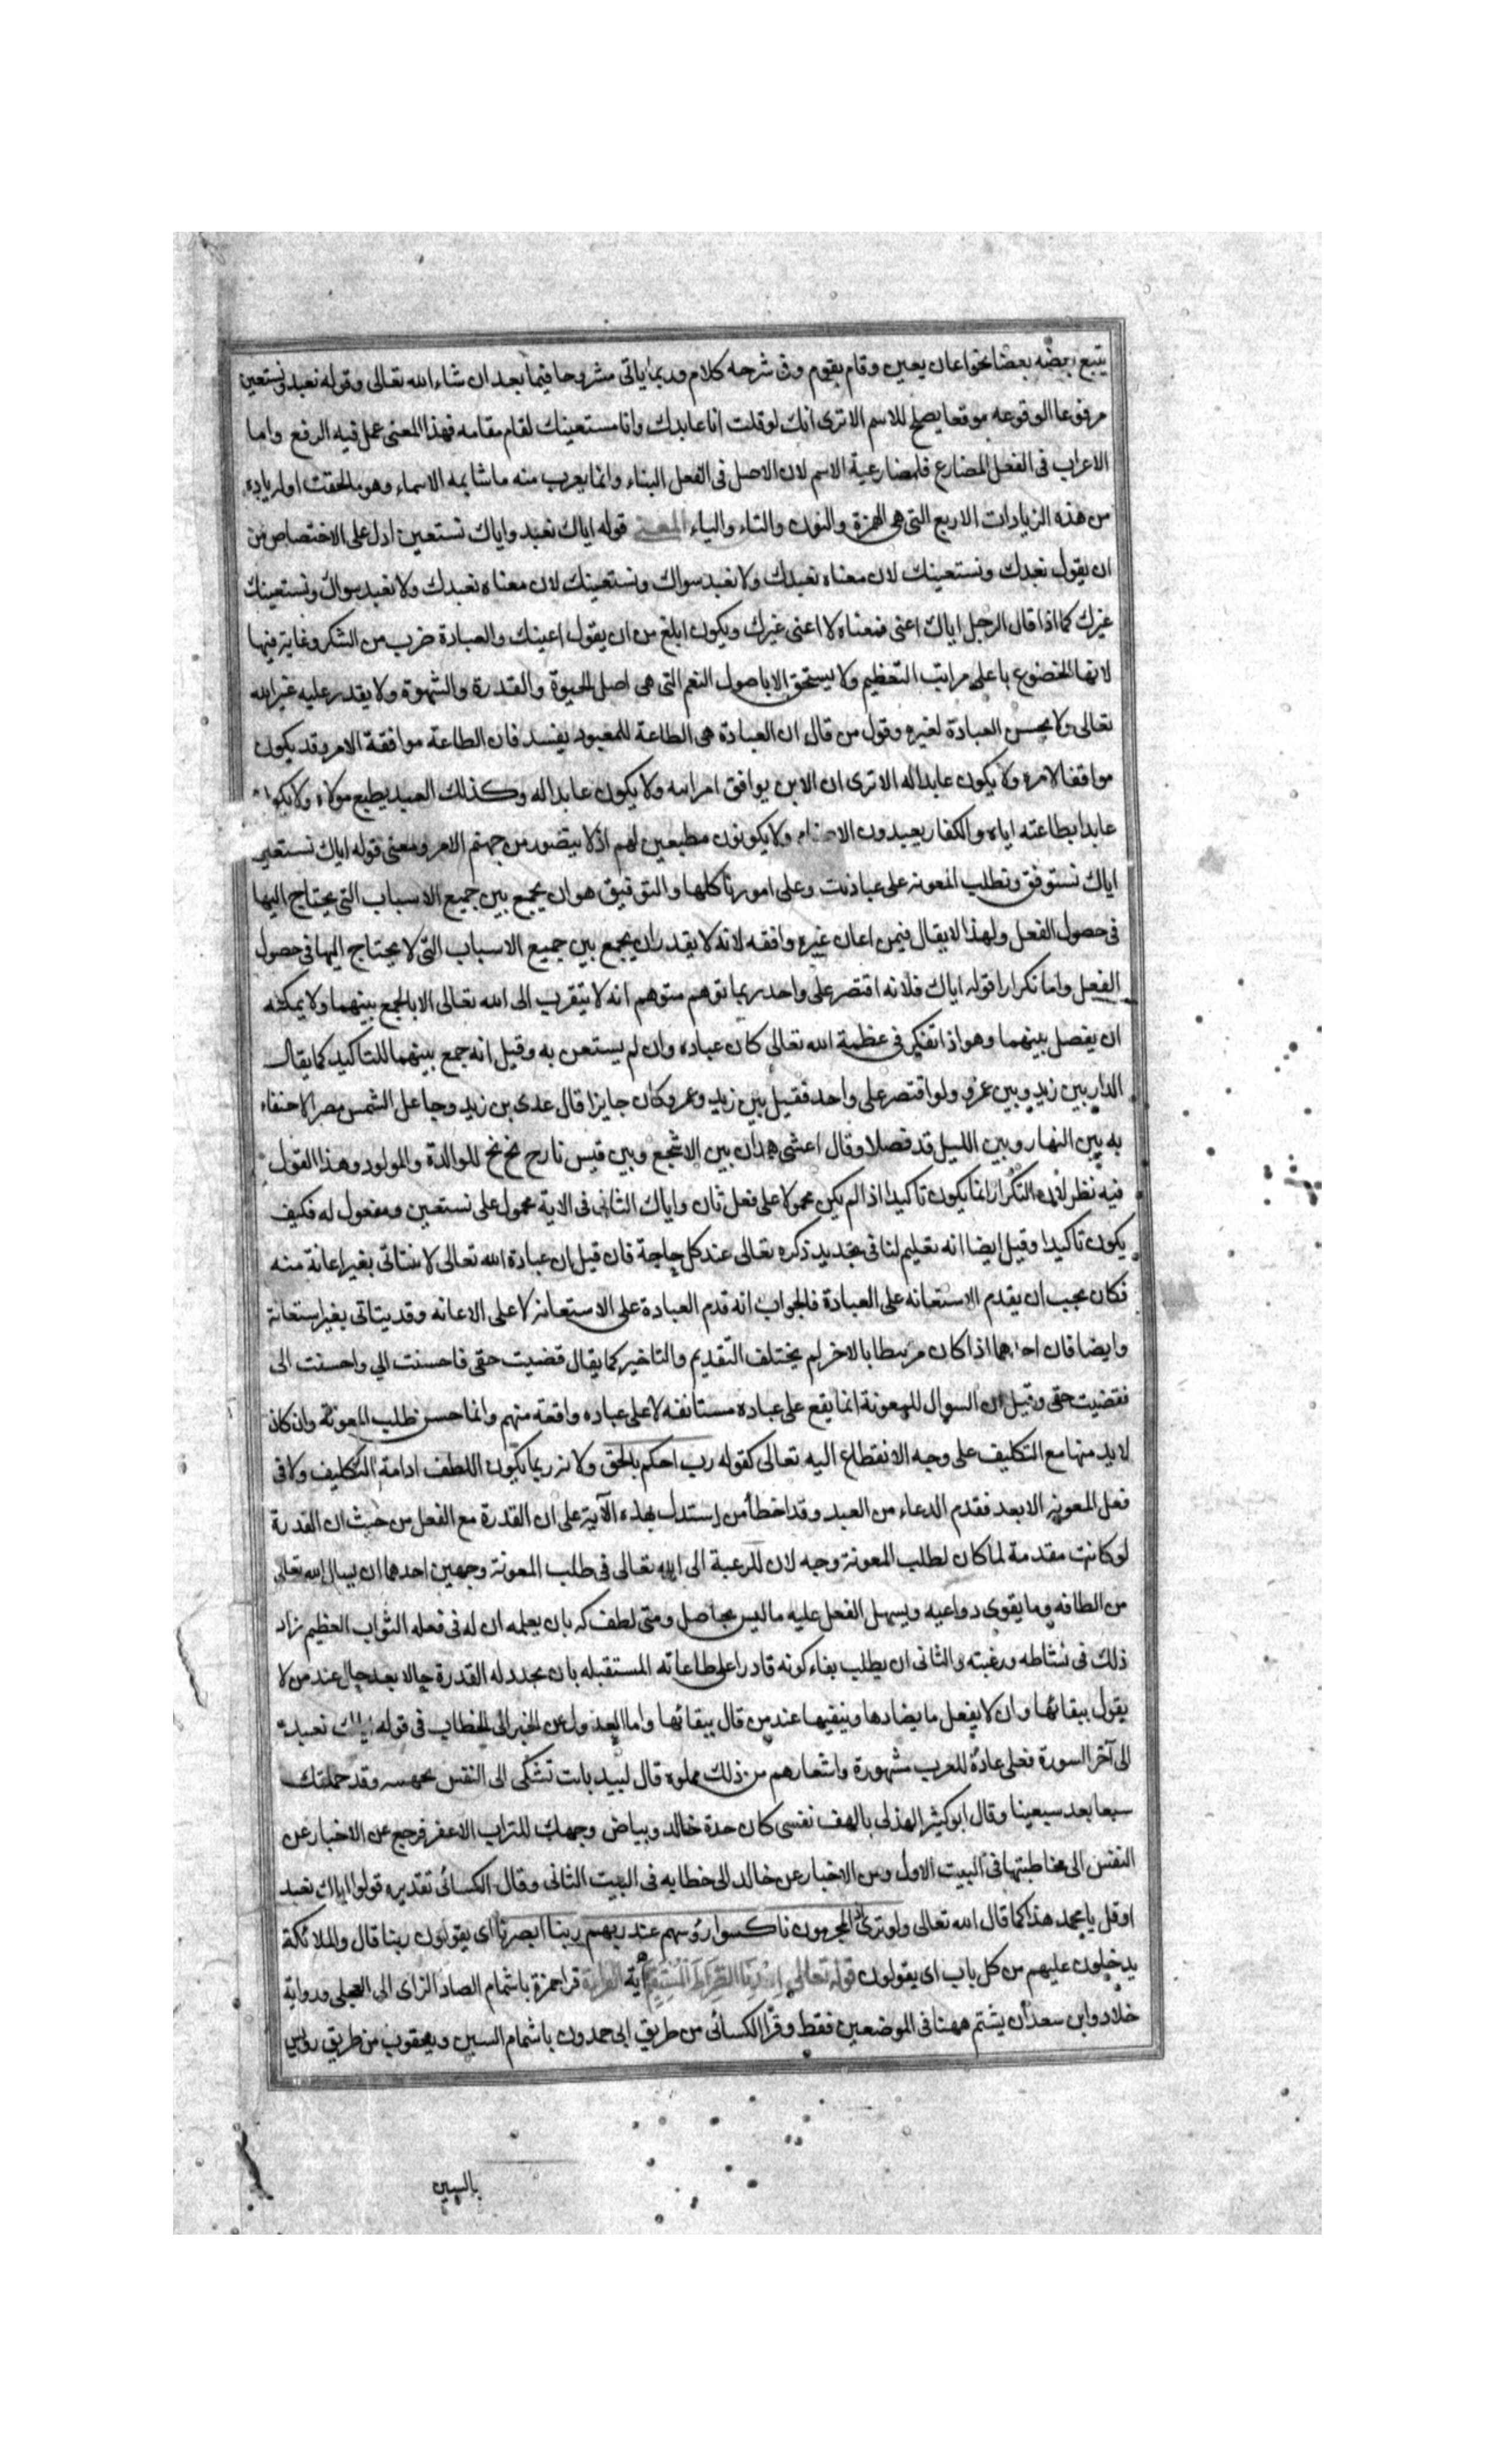 يتبع بعضه بعضا نحو اعان يعين وقام يقوم وفى شرحه كلام وربما ياتى مشروحا فيما بعد ان شاء الله تعالى وقوله نعبد ونستعين
مرفوعا لوقوعه موقعا يصلح للاسم الا ترى انك لو قلت انا عابدك وانا مستعينك لقام مقامه فهذا المعنى عمل فيه الرفع واما
الاعراب فى الفعل المضارع فلمضارعة الاسم لان الاصل فى الفعل البناء وانما يعرب منه ما شابه الاسماء وهو ما لحقت اوله زيادة
من هذه الزيادات الاربع التى هى الهمزة والنون والتاء والياء المعنى قوله اياك نعبد واياك نستعين ادل على الاختصاص من
ان يقول نعبدك ونستعينك لان معناه نعبدك ولا نعبد سواك ونستعينك لان معناه نعبدك ولا نعبد سواك ونستعينك
غيرك كما اذا قال الرجل اياك اعنى فمعناه لا اعنى غيرك ويكون ابلغ من ان يقول اعينك والعبادة ضرب من الشكر وغاية فيها
لانها الخضوع باعلى مراتب التعظيم ولا يستحق الا باصول النعم التى هى اصل الحيوة والقدرة والشهوة ولا يقدر عليه غير الله
تعالى ولا يحسن العبادة لغيره وقول من قال ان العبادة هى الطاعة للمعبود يفسد فان الطاعة موافقة الامر وقد يكون
موافقا لامره ولا يكون عابدا له الا ترى ان الابن يوافق امر ابيه ولا يكون عابدا له وكذلك العبد يطيع مولاه ولا يكون
عابدا بطاعته اياه والكفار يعبدون الاصنام ولا يكونون مطيعين لهم اذ لا يتصور من جهتهم الامر ومعنى قوله اياك نستعين
اياك نستوفق ونطلب المعونة على عبادتك وعلى امورنا كلها والتوفيق هو ان يجمع بين جميع الاسباب التى يحتاج اليها
فى حصول الفعل ولهذا لا يقال فيمن اعان غيره وافقه لانه لا يقدر ان يجمع بين جميع الاسباب التى لا يحتاج اليها فى حصول
الفعل واما تكرار قوله اياك فلانه اقتصر على واحد ربما توهم متوهم انه لا يتقرب الى الله تعالى الا بالجمع بينهما ولا يمكنه
ان يفصل بينهما وهو اذا تفكر فى عظمة الله تعالى كان عباده وان لم يستعن به وقيل انه جمع بينهما للتاكيد كما يقال
الدار بين زيد وبين عمرو ولو اقتصر على واحد فقيل بين زيد وعمرو كان جايزا قال عدى بن زيد وجاعل الشمس مصرا لا خفاء
به بين النهار وبين الليل قد فصلا وقال اعشى همدان بين الاشجع وبين قيس نارح بخ بخ للوالدة والمولود وهذا القول
فيه نظر لان التكرار انما يكون تاكيدا اذا لم يكن محمولا على فعل ثان واياك الثانى فى الاية محمول على نستعين ومفعول له فكيف
يكون تاكيدا وقيل ايضا انه تعليم لنا فى تجديد ذكره تعالى عند كل حاجة فان قيل ان عبادة الله تعالى لا تتاتى بغير اعانة منه
فكان يجب ان يقدم الاستعانه على العبادة فالجواب انه قدم العبادة على الاستعانة لا على الاعانه وقد يتاتى بغير استعانة
وايضا فان احدهما اذا كان مرتبطا بالاخر لم يختلف التقديم والتاخير كما يقال قضيت حقى فاحسنت الي واحسنت الى
فقضيت حقى وقيل ان السوال للمعونة انما يقع على عباده مستانفه لا على عباده واقعة منهم وانما حسن طلب المعونة وان كان
لا بد منها مع التكليف على وجه الانقطاع اليه تعالى كقوله رب احكم بالحق ولانه ربما يكون اللطف ادامة التكليف ولا فى
فعل المعونة الا بعد فقدم الدعاء من العبد وقد اخطأ من استدل بهذه الآية على ان القدرة مع الفعل من حيث ان القدرة
لو كانت مقدمة لما كان لطلب المعونة وجه لان للرغبة الى الله تعالى فى طلب المعونة وجهين احدهما ان يسال الله تعالى
من الطافه وما يقوى دواعيه ويسهل الفعل عليه ما ليس بحاصل ومتى لطف له بان يعلمه ان له فى فعله الثواب العظيم زاد
ذلك فى نشاطه ورغبته والثانى ان يطلب بقاء كونه قادرا على طاعاته المستقبله بان يجدد له القدرة حالا بعد حال عند من لا
يقول ببقائها وان لا يفعل ما يضادها وينفيها عند من قال ببقائها واما العدول عن الخبر الى الخطاب فى قوله اياك نعبد
الى آخر السورة فعلى عادة للعرب مشهورة واشعارهم من ذلك مملوه قال لبيد باتت تشكى الى النفس مجهشه وقد حملتك
سبعا بعد سبعينا وقال ابو كثير الهذلى يالهف نفسى كان حدة خالد وبياض وجهك للتراب الاعفر فرجع عن الاخبار عن
النفس الى مخاطبتها فى البيت الاول ومن الاخبار عن خالد الى خطابه فى البيت الثانى وقال الكسائى تقديره قولوا اياك نعبد
او قل يا محمد هذا كما قال الله تعالى ولو ترى اذ المجرمون ناكسوا رؤسهم عند ربهم ربنا ابصرنا اى يقولون ربنا قال والملائكة
يدخلون عليهم من كل باب اى يقولون قوله تعالى اهدنا الصراط المستقيم آية القراءة قرا حمزة باشمام الصاد الزاى الى العجلى ورواية
خلاد وابن سعدان يشتم ههنا فى الموضعين فقط وقرأ الكسائى من طريق ابى حمدون باشمام السين ويعقوب من طريق رويس
بالسين